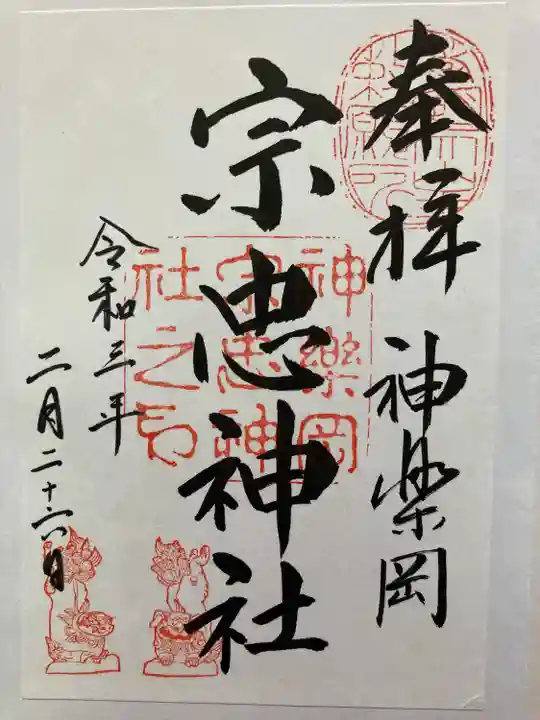 奉拝
神楽岡
宗忠神社
神樂岡
宗忠神
社之印
令和三年
二月二十六日